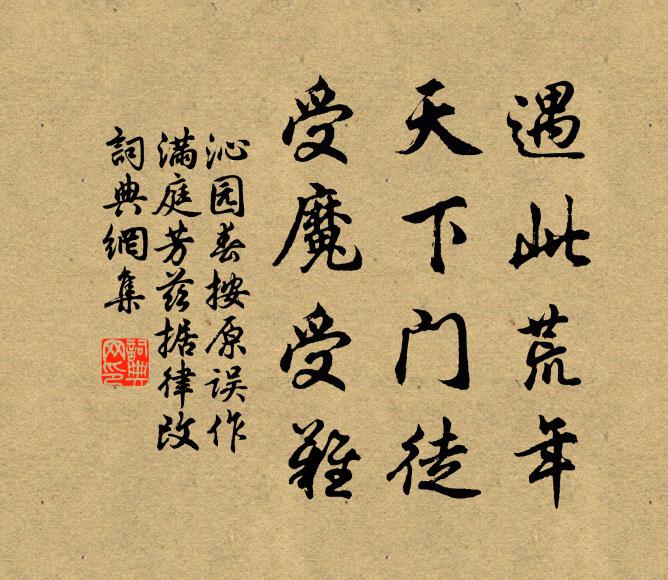 遇此荒年
天下门徒
受魔受難
沁园春按原误作
满庭芳兹据律改
詞典網集
詞典网印